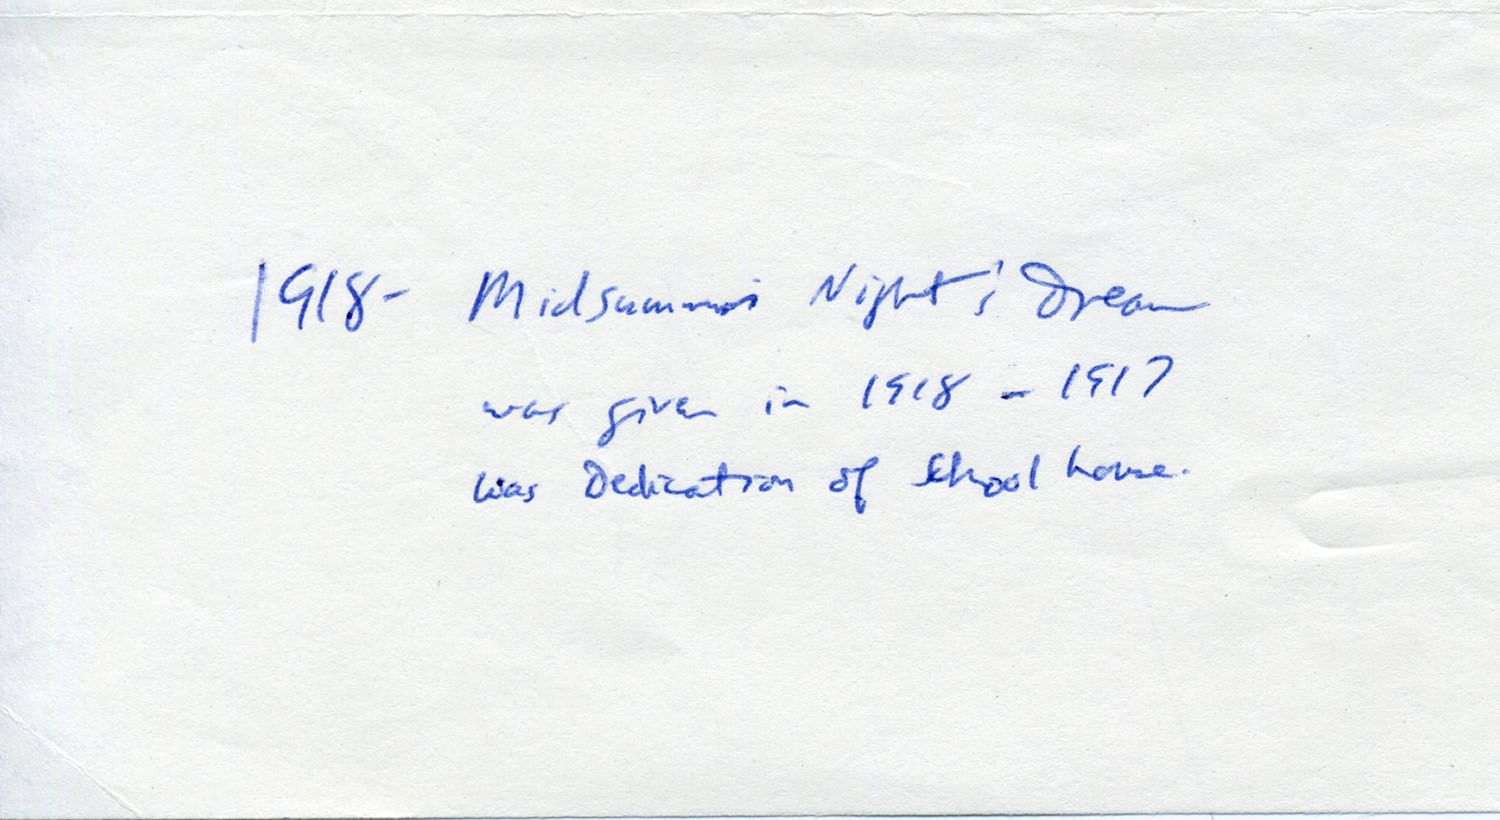 1918- Midsummer Night's Dream
was given in 1918 - 1917
was Dedication of School house.